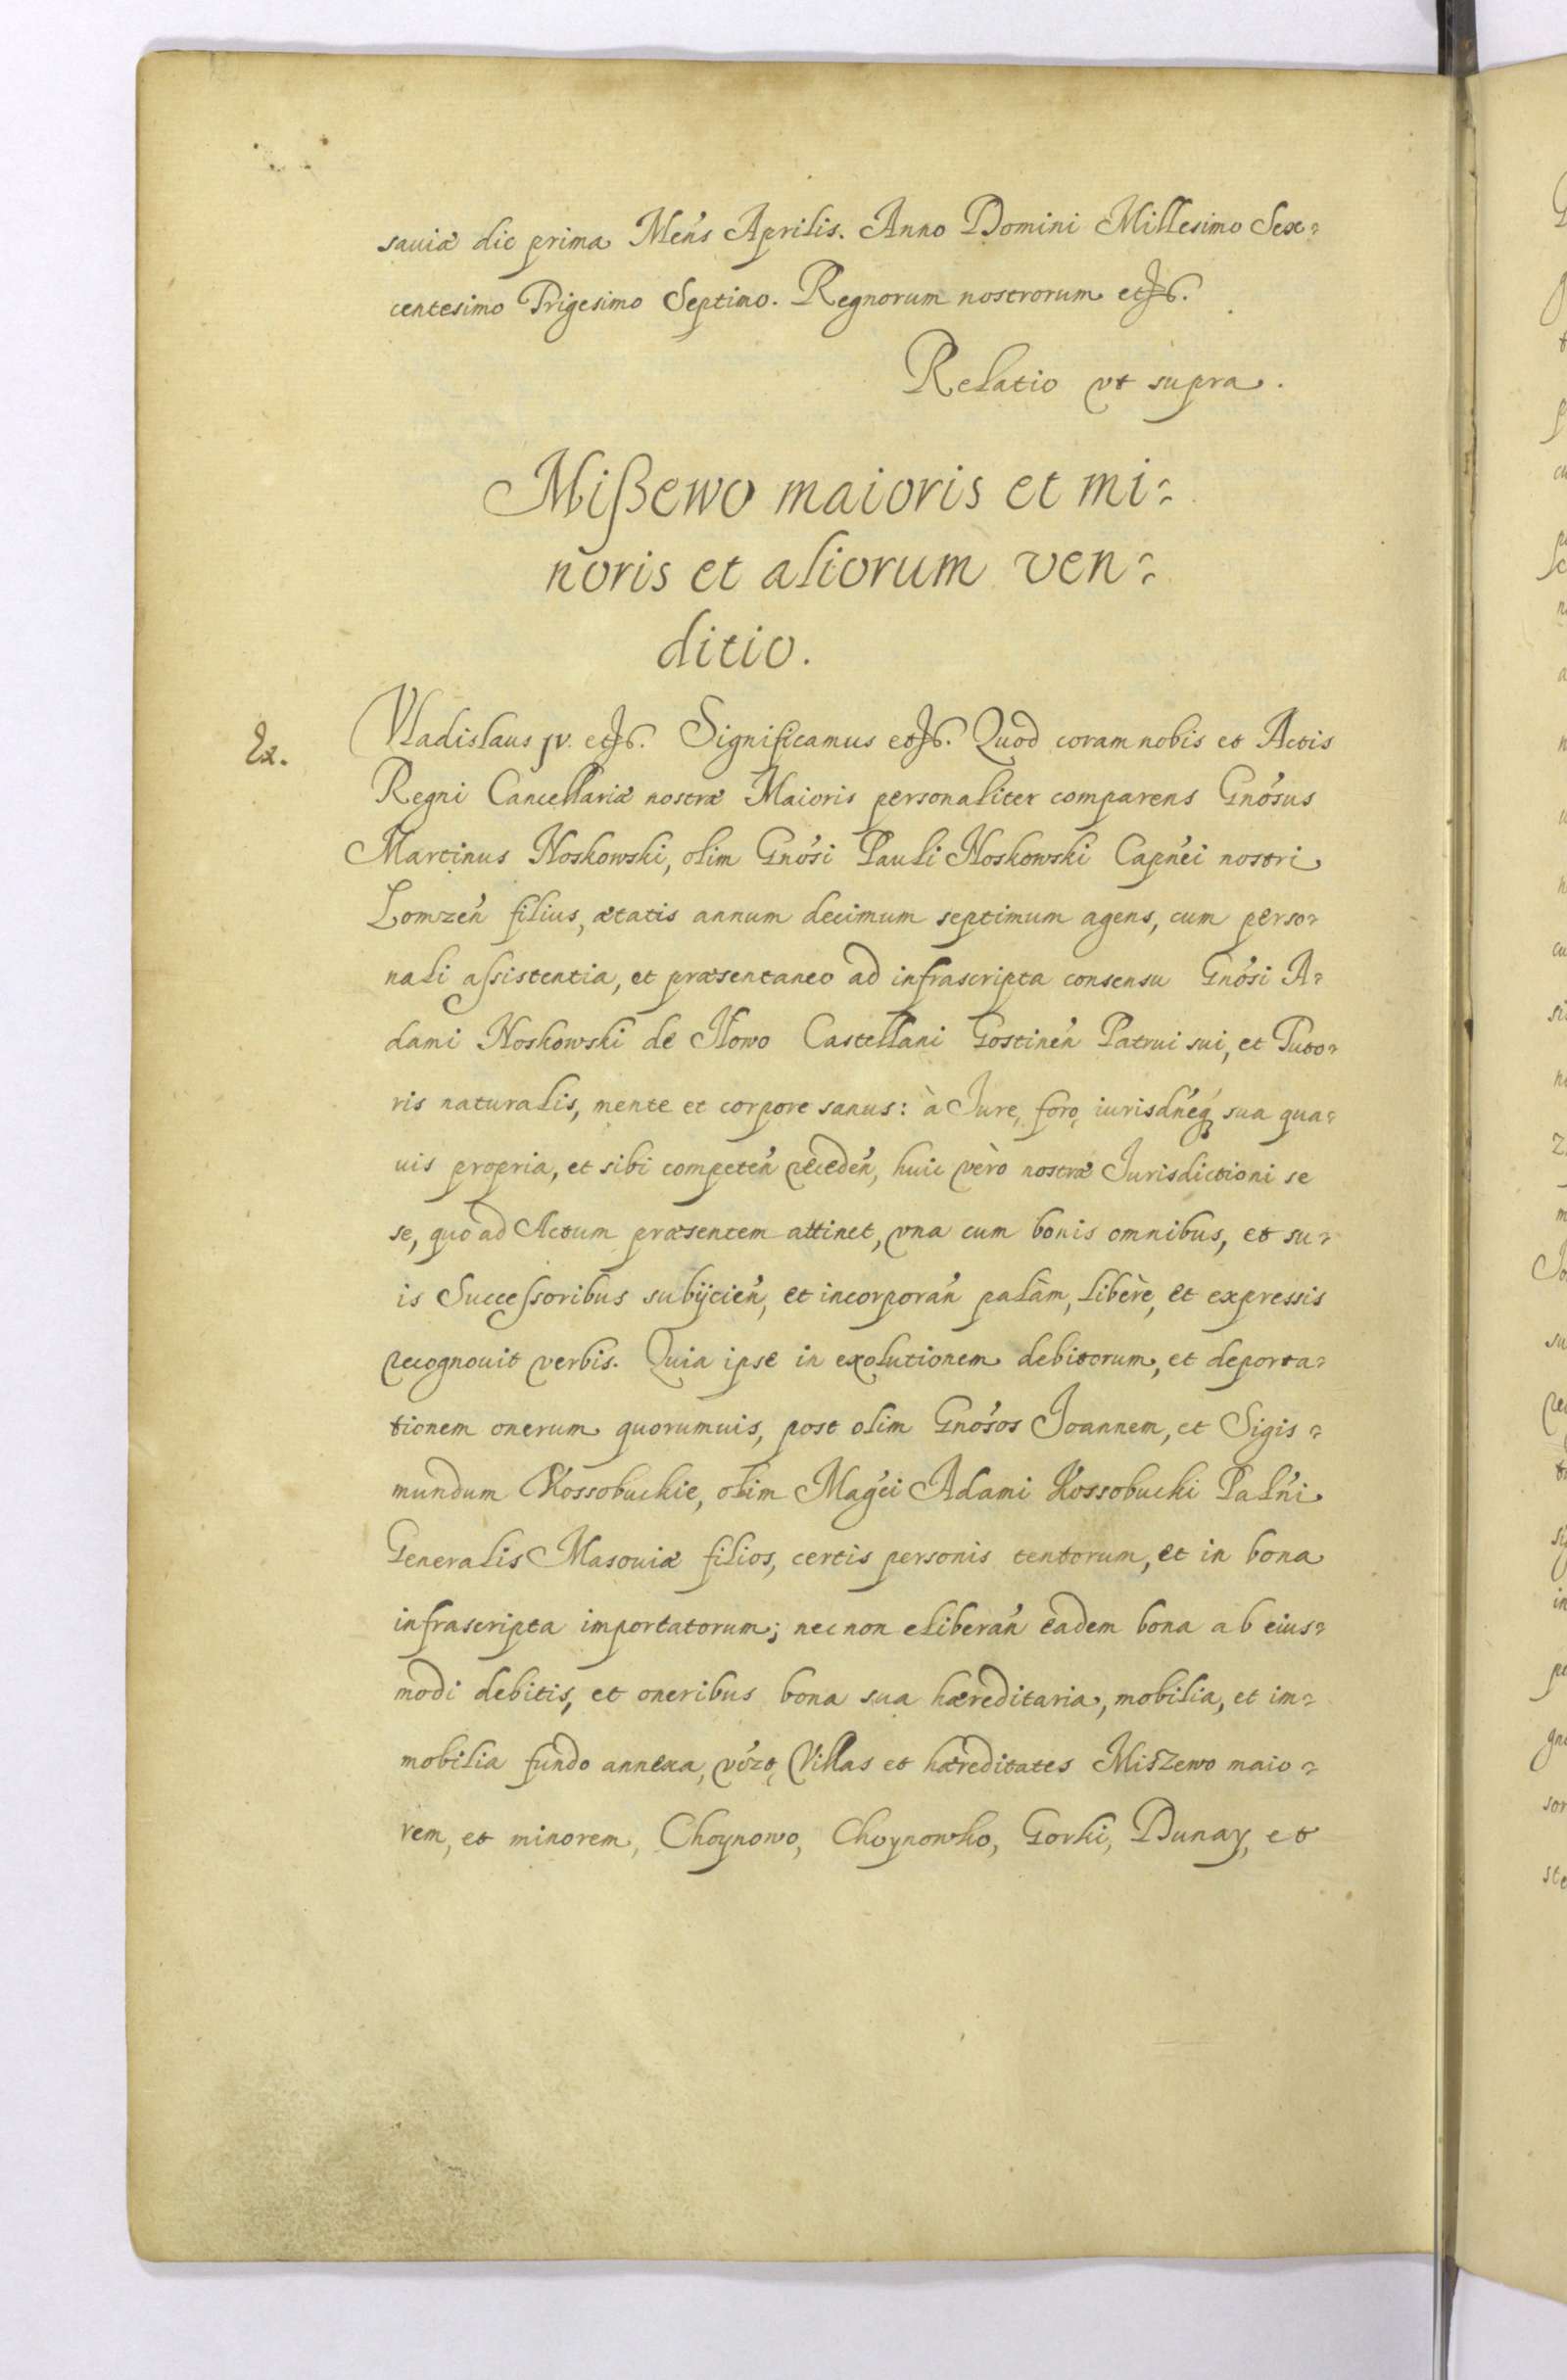 sauiæ die prima Men's Aprilis. Anno Domini Millesimo Sex=
centesimo Trigesimo Septimo. Regnorum nostrorum etc.
Relatio vt supra.
Mißewo maioris et mi=
noris et aliorum ven=
ditio.
Ex.
Vladislaus IV. etc. Significamus etc. Quod coram nobis et Actis
Regni Cancellariæ nostræ Maioris personaliter comparens Gnósus
Martinus Noskowski, olim Gnósi Pauli Noskowski Capn'ei nostri
Lomzen' filius, ætatis annum decimum septimum agens, cum perso=
nali assistentia, et præsentaneo ad infrascripta consensu Gnósi A=
dami Noskowski de Nowo Castellani Gostinen' Patrui sui, et Tuto=
ris naturalis, mente et corpore sanus: à Iure, foro, iurisdn'eq3 sua qua=
uis propria, et sibi competen' receden', huic verò nostræ Iurisdictioni se
se, quo ad Actum præsentem attinet, vna cum bonis omnibus, et su=
is Successoribus subijcien', et incorporan' palàm, liberè, et expressis
recognouit verbis. Quia ipse in exolutionem debitorum, et deporta=
tionem onerum quorumuis, post olim Gnósos Ioannem, et Sigis=
mundum Kossobuckie, olim Mag'ci Adami Kossobucki Paln'i
Generalis Masouiæ filios, certis personis tentorum, et in bona
infrascripta importatorum; nec non eliberan' eadem bona ab eius=
modi debitis, et oneribus bona sua hæreditaria, mobilia, et im=
mobilia fundo annexa, vózt, Villas et hæreditates Miszewo maio=
rem, et minorem, Choynowo, Choynowko, Gorki, Dunay, et